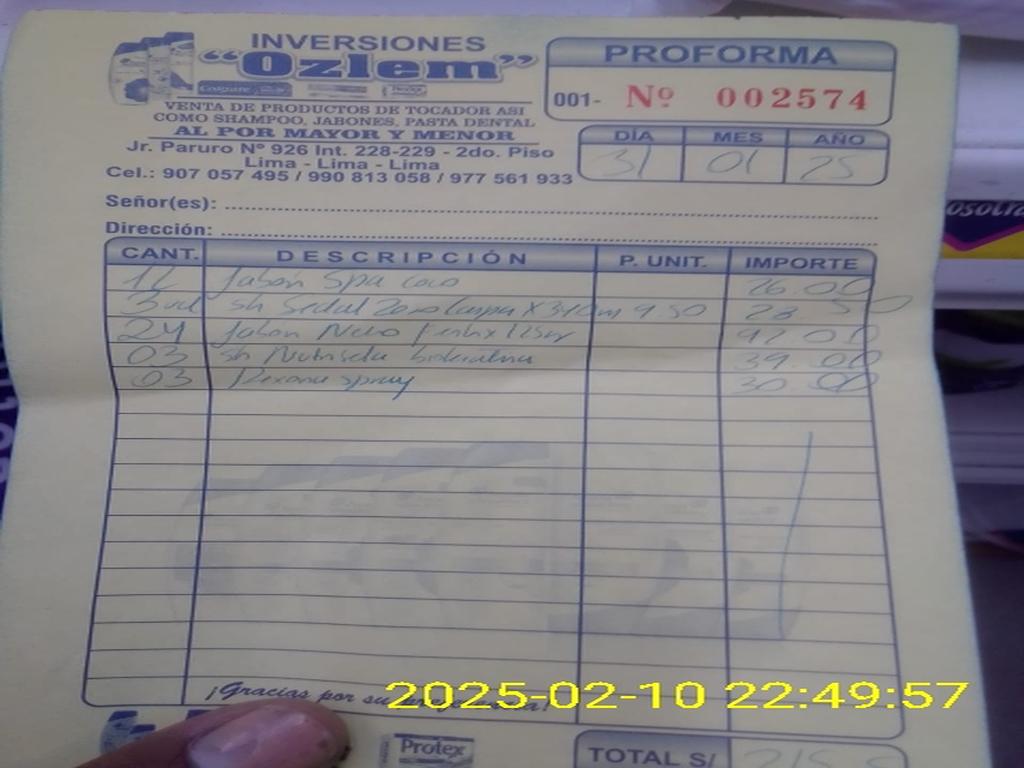 INVERSIONES
"Ozlem"
Colgate
Protex
VENTA DE PRODUCTOS DE TOCADOR ASI
COMO SHAMPOO, JABONES, PASTA DENTAL
AL POR MAYOR Y MENOR
Jr. Paruro Nº 926 Int. 228-229 - 2do. Piso
Lima - Lima - Lima
Cel.: 907 057 495 / 990 813 058 / 977 561 933
PROFORMA
001- Nº 002574
DÍA MES AÑO
31 01 25
Señor(es):
Dirección:
CANT. DESCRIPCIÓN P. UNIT. IMPORTE
12 Jabón Spa coco 26.00
3 sh Sedal x340m 9.50 28.50
24 Jabon Neko 92.00
03 sh 39.00
03 Rexona spray 30.00
¡Gracias por su
2025-02-10 22:49:57
Protex
TOTAL S/ 215.5